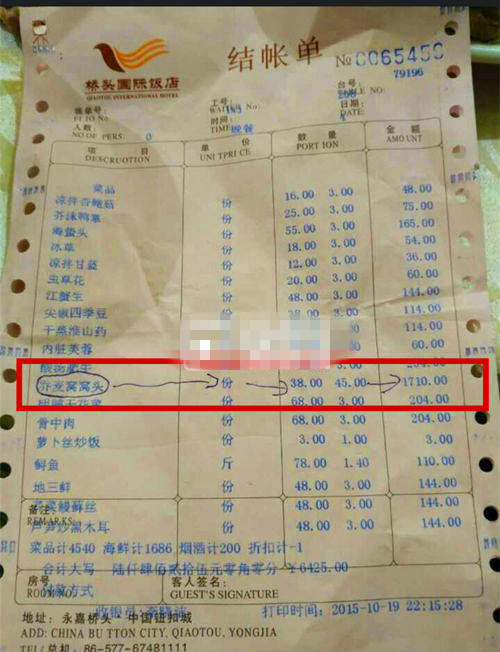 桥头国际饭店
QIAOTOU INTERNATIONAL HOTEL
结帐单
№ 0065450
79196
工号
台号
TABLE NO:
日期
DATE:
人数
NO OF PERS: 0
TIME: 晚餐
项目 单价 数量 金额
DESCRUOTION UNITPRICE PORTION AMOUNT
菜品
凉拌杏鲍菇 份 16.00 3.00 48.00
芥沫鸭掌 份 25.00 3.00 75.00
海蜇头 份 55.00 3.00 165.00
冰草 份 18.00 3.00 54.00
凉拌甘蓝 份 12.00 3.00 36.00
虫草花 份 20.00 3.00 60.00
江蟹生 份 48.00 3.00 144.00
尖椒四季豆 份 3.00 144.00
干蒸淮山药 114.00
内脏芙蓉 60.00
3.00 204.00
窝窝头 份 38.00 45.00 1710.00
份 68.00 3.00 204.00
骨中肉 份 68.00 3.00 204.00
萝卜丝炒饭 份 3.00 1.00 3.00
鲥鱼 斤 78.00 1.40 110.00
地三鲜 份 48.00 3.00 144.00
鳗鲞丝 份 48.00 3.00 144.00
芦笋炒黑木耳 份 48.00 3.00 144.00
备注:
REMARKS:
菜品计4540 海鲜计1686 烟酒计200 折扣计-1
合计大写 陆仟肆佰贰拾伍元零角零分 ¥6425.00
房号
ROOM NO.
付款方式
客人签名:
GUEST'S SIGNATURE
收银员:
打印时间:2015-10-19 22:15:28
地址: 永嘉桥头·中国钮扣城
ADD: CHINA BUTTON CITY, QIAOTOU, YONGJIA
TEL/总机: 86-577-67481111